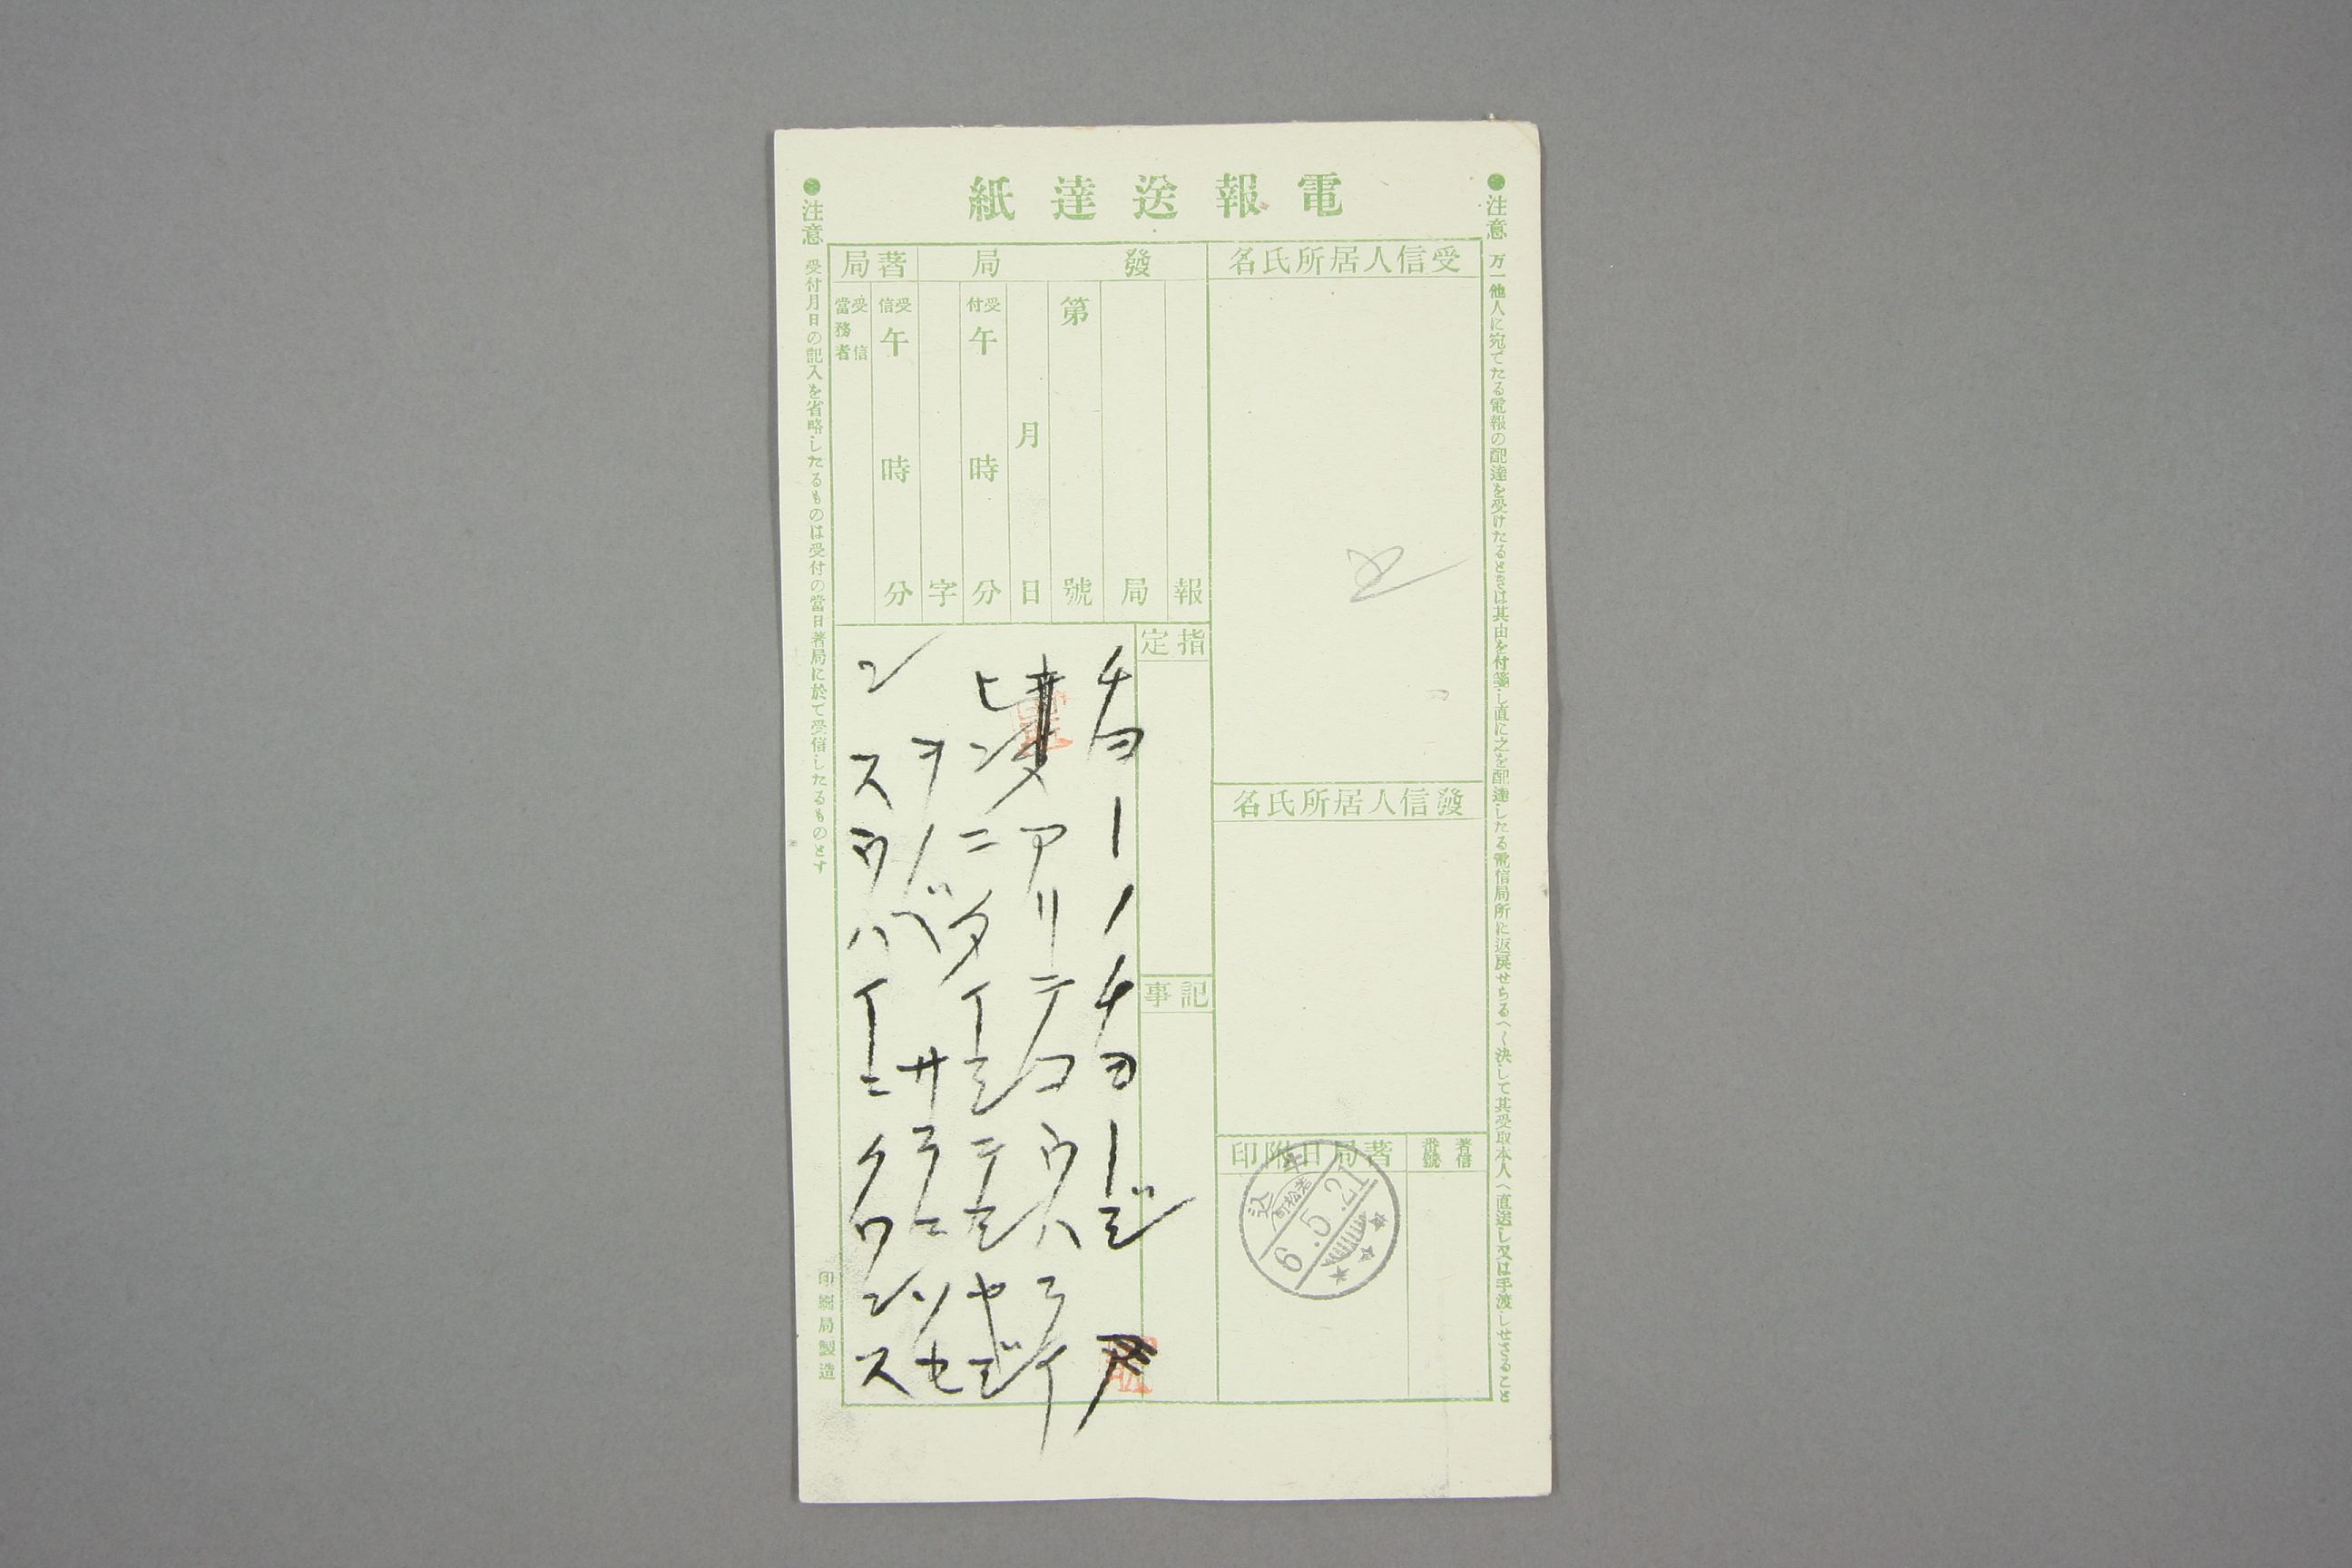 電報送達紙
●注意 万一他人に宛てたる電報の配達を受けたるときは其由を付箋し直に之を配達したる電信局所に返戻せらるへく決して其受取本人へ直送し又は手渡しせさること
受信人居所氏名
發局
著局
報
局
第 號
月 日
受付 午 時 分
字
受信 午 時 分
受信當務者
指定
記事
發信人居所氏名
著信番號
著局日附印
牛込
若松町
6.5.21
チヨーノチヨージ
アリテコウハライ
ヒンニタイシテモヤジ
ヲノベサラニソセ
ンスウハイニクワンス
●注意 受付月日の記入を省略したるものは受付の當日著局に於て受信したるものとす
印刷局製造